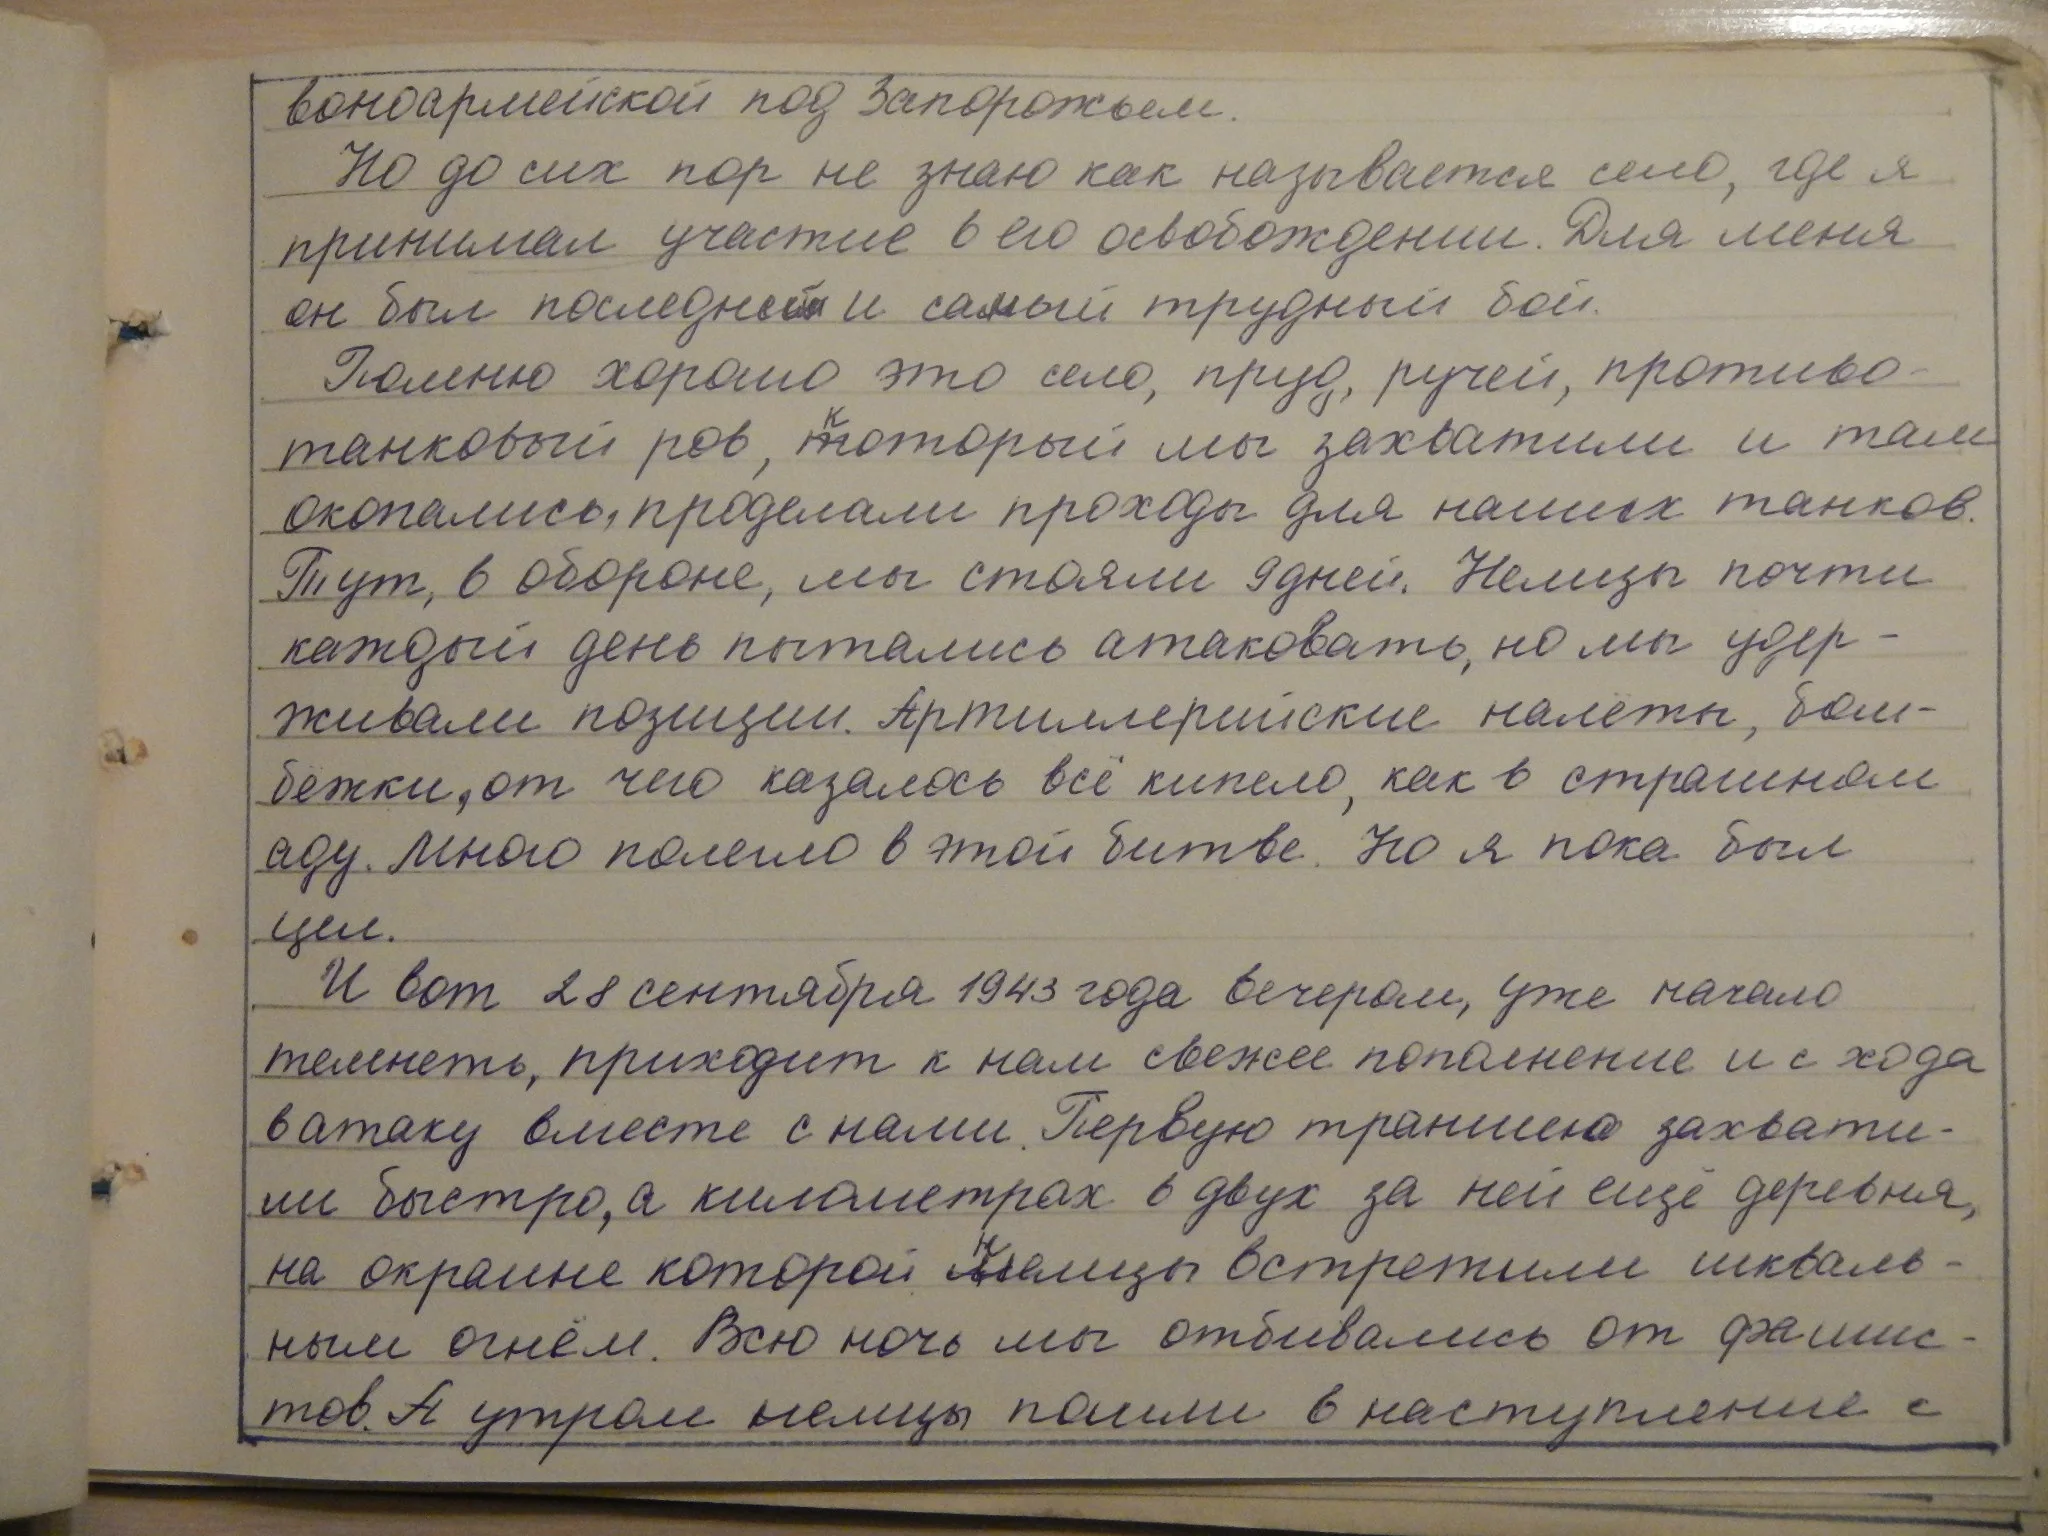 воноармейской под Запорожьем.
Но до сих пор не знаю как называется село, где я
принимал участие в его освобождении. Для меня
он был последней и самый трудный бой.
Помню хорошо это село, пруд, ручей, противо-
танковый ров, который мы захватили и там
окопались, проделали проходы для наших танков.
Тут, в обороне, мы стояли 9 дней. Немцы почти
каждый день пытались атаковать, но мы удер-
живали позиции. Артиллерийские налёты, бом-
бёжки, от чего казалось всё кипело, как в страшном
аду. Много полегло в этой битве. Но я пока был
цел.
И вот 28 сентября 1943 года вечером, уже начало
темнеть, приходит к нам свежее пополнение и с хода
в атаку вместе с нами. Первую траншею захвати-
ли быстро, а километрах в двух за ней ещё деревня,
на окраине которой немцы встретили шкваль-
ным огнём. Всю ночь мы отбивались от фашис-
тов. А утром немцы пошли в наступление с